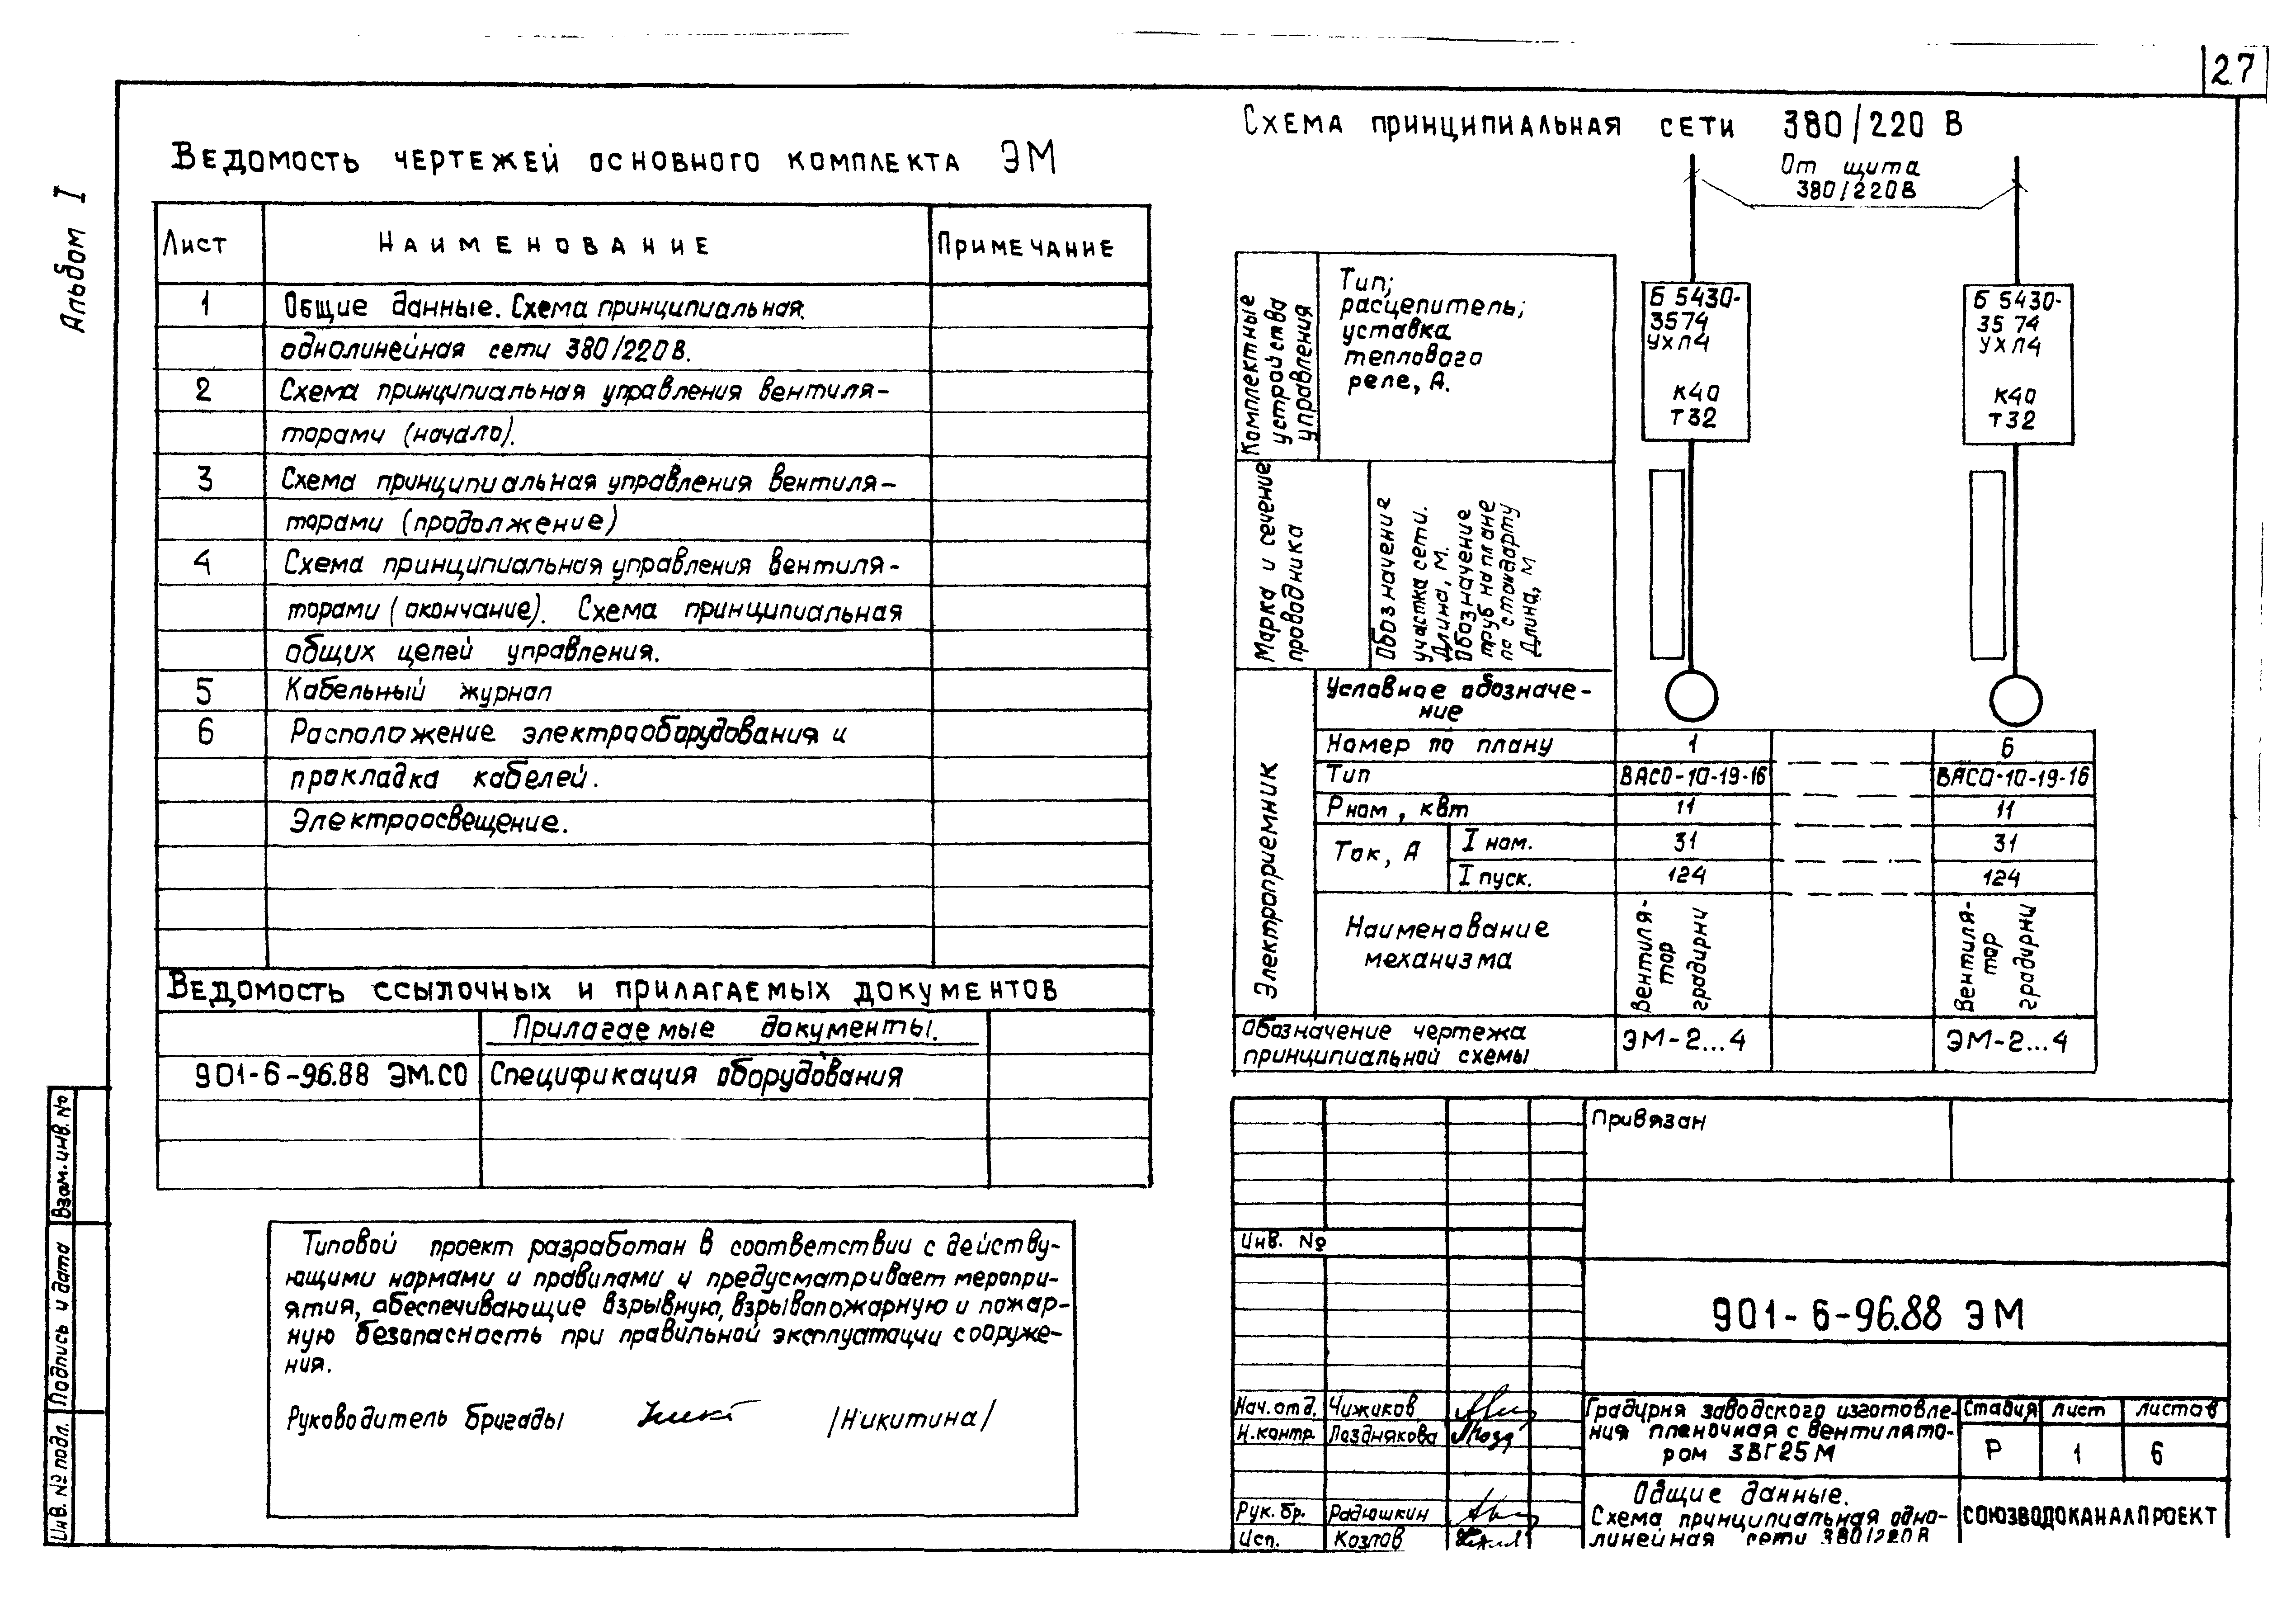 27
Альбом I
Ведомость чертежей основного комплекта ЭМ
Лист Наименование Примечание
1 Общие данные. Схема принципиальная
однолинейная сети 380/220 В.
2 Схема принципиальная управления вентиля-
торами (начало).
3 Схема принципиальная управления вентиля-
торами (продолжение)
4 Схема принципиальная управления вентиля-
торами (окончание). Схема принципиальная
общих цепей управления.
5 Кабельный журнал
6 Расположение электрооборудования и
прокладка кабелей.
Электроосвещение.
Ведомость ссылочных и прилагаемых документов
Прилагаемые документы.
901-6-96.88 ЭМ.СО Спецификация оборудования
Типовой проект разработан в соответствии с действу-
ющими нормами и правилами и предусматривает меропри-
ятия, обеспечивающие взрывную, взрывопожарную и пожар-
ную безопасность при правильной эксплуатации сооруже-
ния.
Руководитель бригады /Никитина/
Взам.инв. №
Подпись и дата
Инв. № подл.
Схема принципиальная сети 380/220 В
От щита
380/220В
Комплектные
устройства
управления
Тип;
расцепитель;
уставка
теплового
реле, А.
Б 5430-
3574
УХЛ4
К40
Т32
Б 5430-
3574
УХЛ4
К40
Т32
Марка и сечение
проводника
Обозначение
участка сети.
Длина, м.
Обозначение
труб на плане
по стандарту
Длина, м
Электроприемник
Условное обозначе-
ние
Номер по плану 1 6
Тип ВАСО-10-19-16 ВАСО-10-19-16
Рном, квт 11 11
Ток, А I ном. 31 31
I пуск. 124 124
Наименование
механизма
Вентиля-
тор
градирни
Вентиля-
тор
градирни
Обозначение чертежа
принципиальной схемы
ЭМ-2...4 ЭМ-2...4
Привязан
Инв. №
901-6-96.88 ЭМ
Нач.отд. Чижиков
Н.контр. Позднякова
Рук. бр. Радюшкин
Исп. Козлов
Градирня заводского изготовле-
ния пленочная с вентилято-
ром 3ВГ25М
Стадия Лист Листов
Р 1 6
Общие данные.
Схема принципиальная одно-
линейная сети 380/220 В
СОЮЗВОДОКАНАЛПРОЕКТ